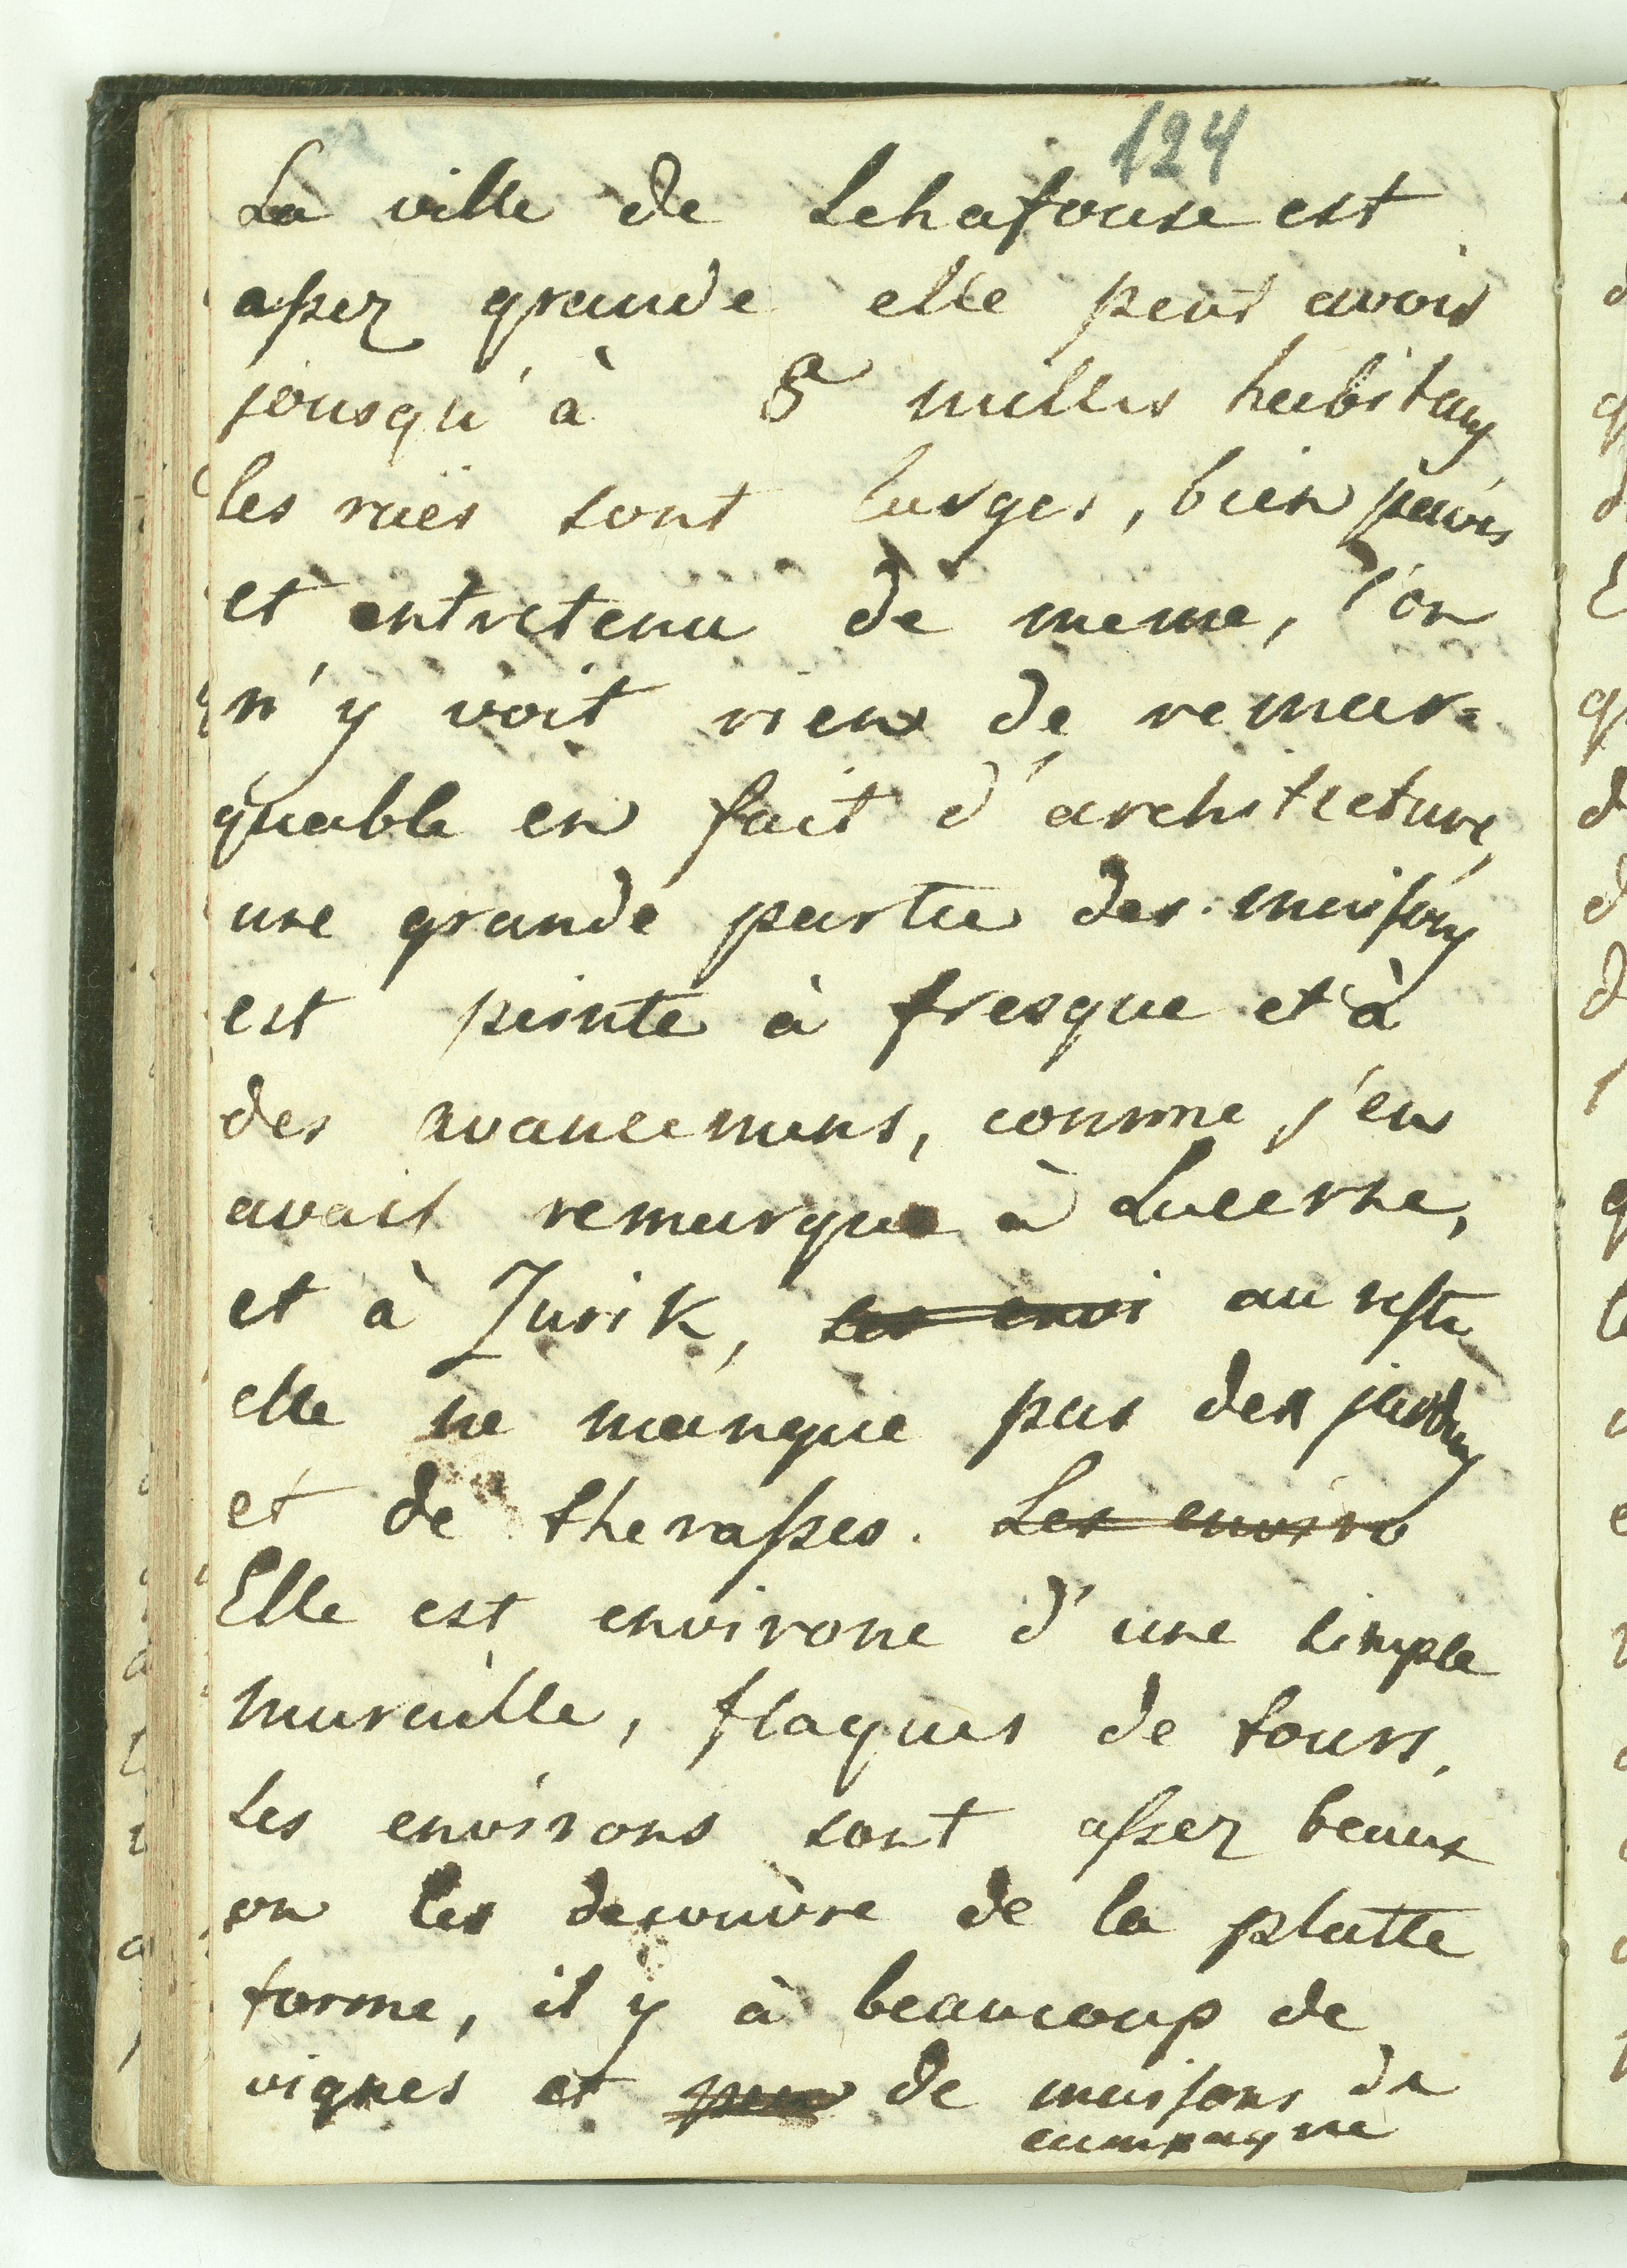 124
La ville de Schafouse est
assez grande elle peut avoir
jousqu'à 8 milles habitans
les rües sont larges, bien pavés
et entretenu de meme, l'on
n'y voit rien de remar=
quable en fait d'architecture,
une grande partie des maisons
est peinte à fresque et à
des avancemens, comme j'en
avait remarque à Lucerne,
et à Zurik, les envi au reste
elle ne manque pas des jardins
et de therasses. Les enviro
Elle est environe d'une simple
muraille, flaques de tours,
Les environs sont assez beaux
on les decouvre de la platte
forme, il y à beaucoup de
vignes et peu de maisons de
campagne